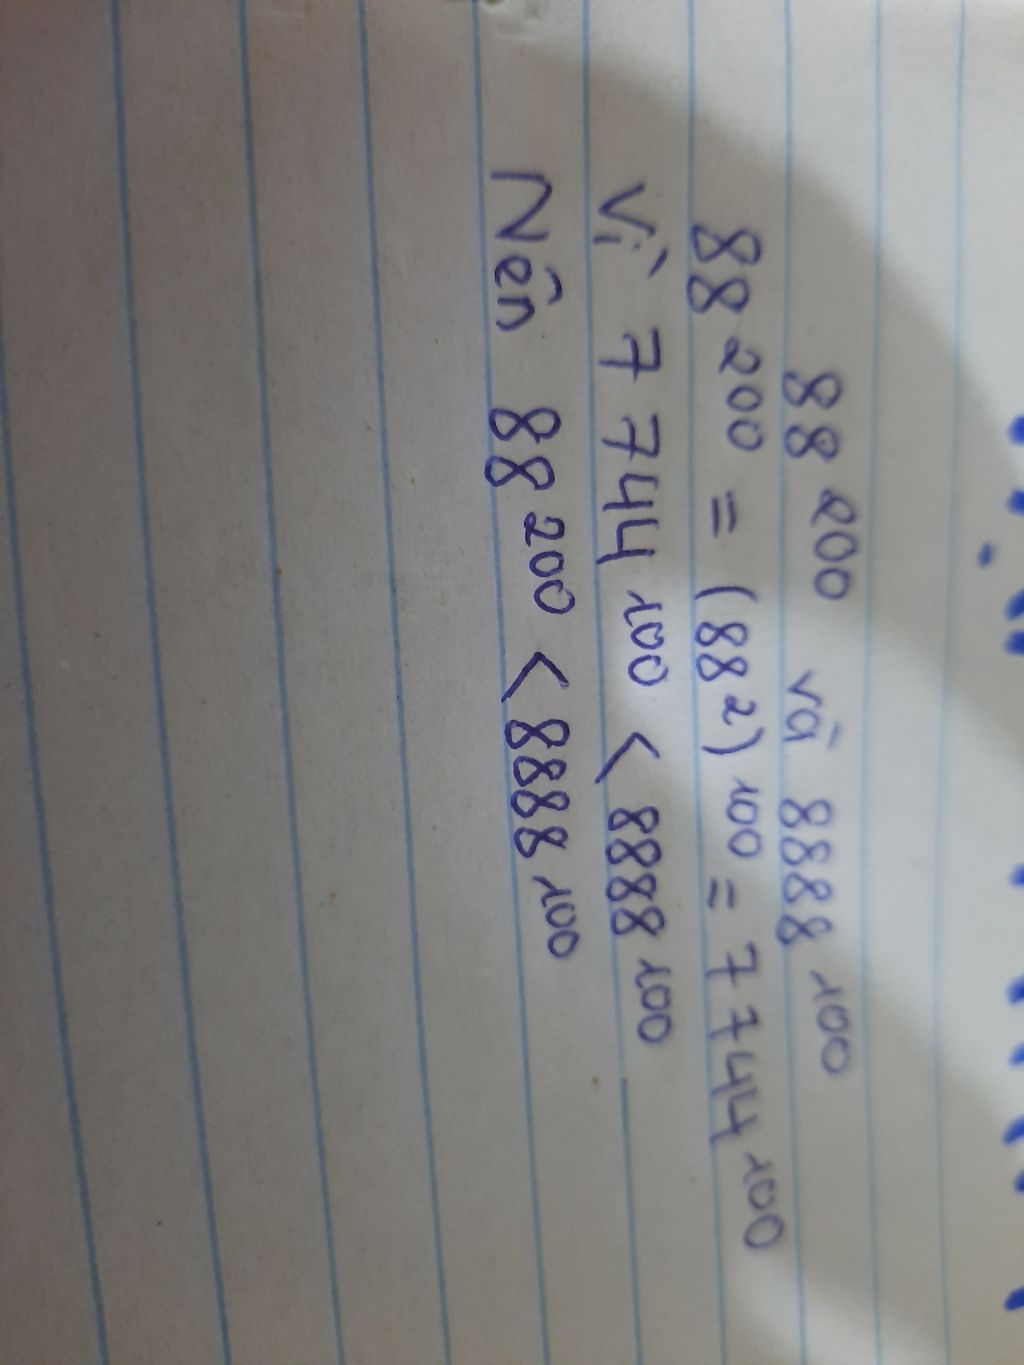 88 200 và 8888 100
88 200 = (88 2) 100 = 7 744 100
Vì 7 744 100 < 8888 100
Nên 88 200 < 8888 100